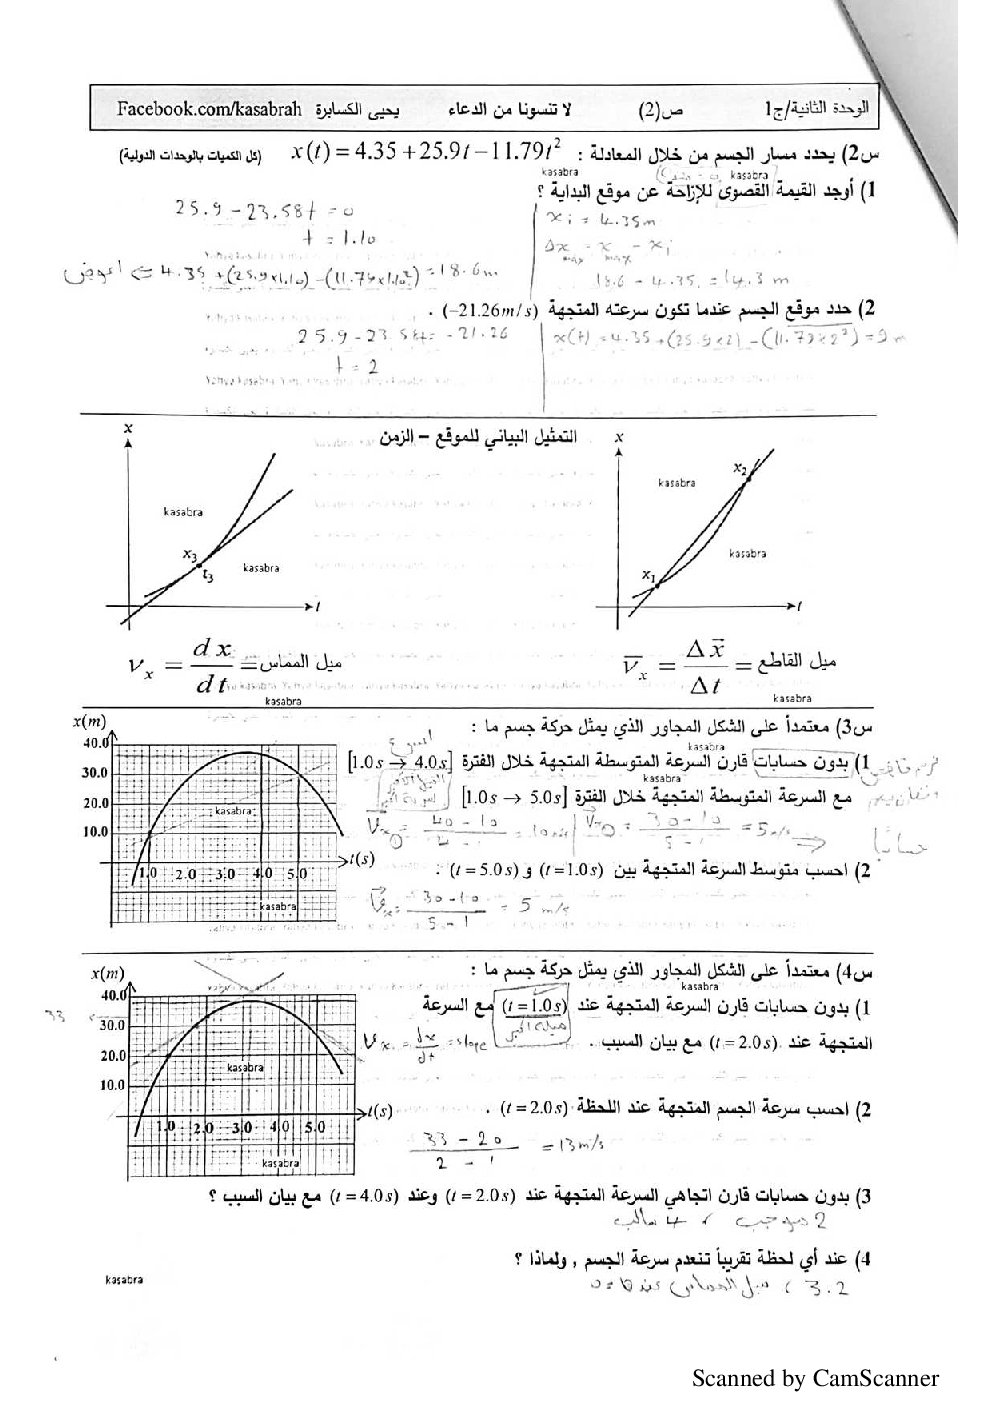 الوحدة الثانية/ج1 ص(2) لا تنسونا من الدعاء يحيى الكسابرة Facebook.com/kasabrah
س2) يحدد مسار الجسم من خلال المعادلة : x(t) = 4.35 + 25.9t − 11.79t² (كل الكميات بالوحدات الدولية)
kasabra kasabra
1) أوجد القيمة القصوى للإزاحة عن موقع البداية ؟
25.9 - 23.58t = 0
t = 1.10
اعوض ⇐ 4.35 + (25.9×1.10) - (11.79×1.10²) = 18.6 m
xi = 4.35m
Δx max = x max - xi
18.6 - 4.35 = 14.3 m
2) حدد موقع الجسم عندما تكون سرعته المتجهة (−21.26m/s) .
25.9 - 23.58t = -21.26
t = 2
x(t) = 4.35 + (25.9×2) - (11.79×2²) = 9 m
التمثيل البياني للموقع – الزمن
x
kasabra
x₃
t₃
kasabra
t
x
x₂
kasabra
kasabra
x₁
t
ميل القاطع = Δx̄ / Δt = v̄x
kasabra
ميل المماس = dx / dt = vx
kasabra
س3) معتمداً على الشكل المجاور الذي يمثل حركة جسم ما :
kasabra
1) بدون حسابات قارن السرعة المتوسطة المتجهة خلال الفترة [1.0s → 4.0s]
kasabra
مع السرعة المتوسطة المتجهة خلال الفترة [1.0s → 5.0s]
= 10 m/s
30 - 10 / 5 - 1 = 5 m/s
حسابيا
2) احسب متوسط السرعة المتجهة بين (t = 1.0s) و (t = 5.0s) .
30 - 10 / 5 - 1 = 5 m/s
x(m)
40.0
30.0
20.0
10.0
kasabra
t(s)
1.0 2.0 3.0 4.0 5.0
kasabra
س4) معتمداً على الشكل المجاور الذي يمثل حركة جسم ما :
kasabra
1) بدون حسابات قارن السرعة المتجهة عند (t = 1.0s) مع السرعة
المتجهة عند (t = 2.0s) مع بيان السبب .
Vx = dx/dt = slope
2) احسب سرعة الجسم المتجهة عند اللحظة (t = 2.0s) .
33 - 20 / 2 - 1 = 13 m/s
x(m)
40.0
33
30.0
20.0
10.0
kasabra
t(s)
1.0 2.0 3.0 4.0 5.0
kasabra
3) بدون حسابات قارن اتجاهي السرعة المتجهة عند (t = 2.0s) وعند (t = 4.0s) مع بيان السبب ؟
2 موجب , 4 سالب
4) عند أي لحظة تقريباً تنعدم سرعة الجسم , ولماذا ؟
3.2 , ميل المماس عندها = 0
kasabra
Scanned by CamScanner